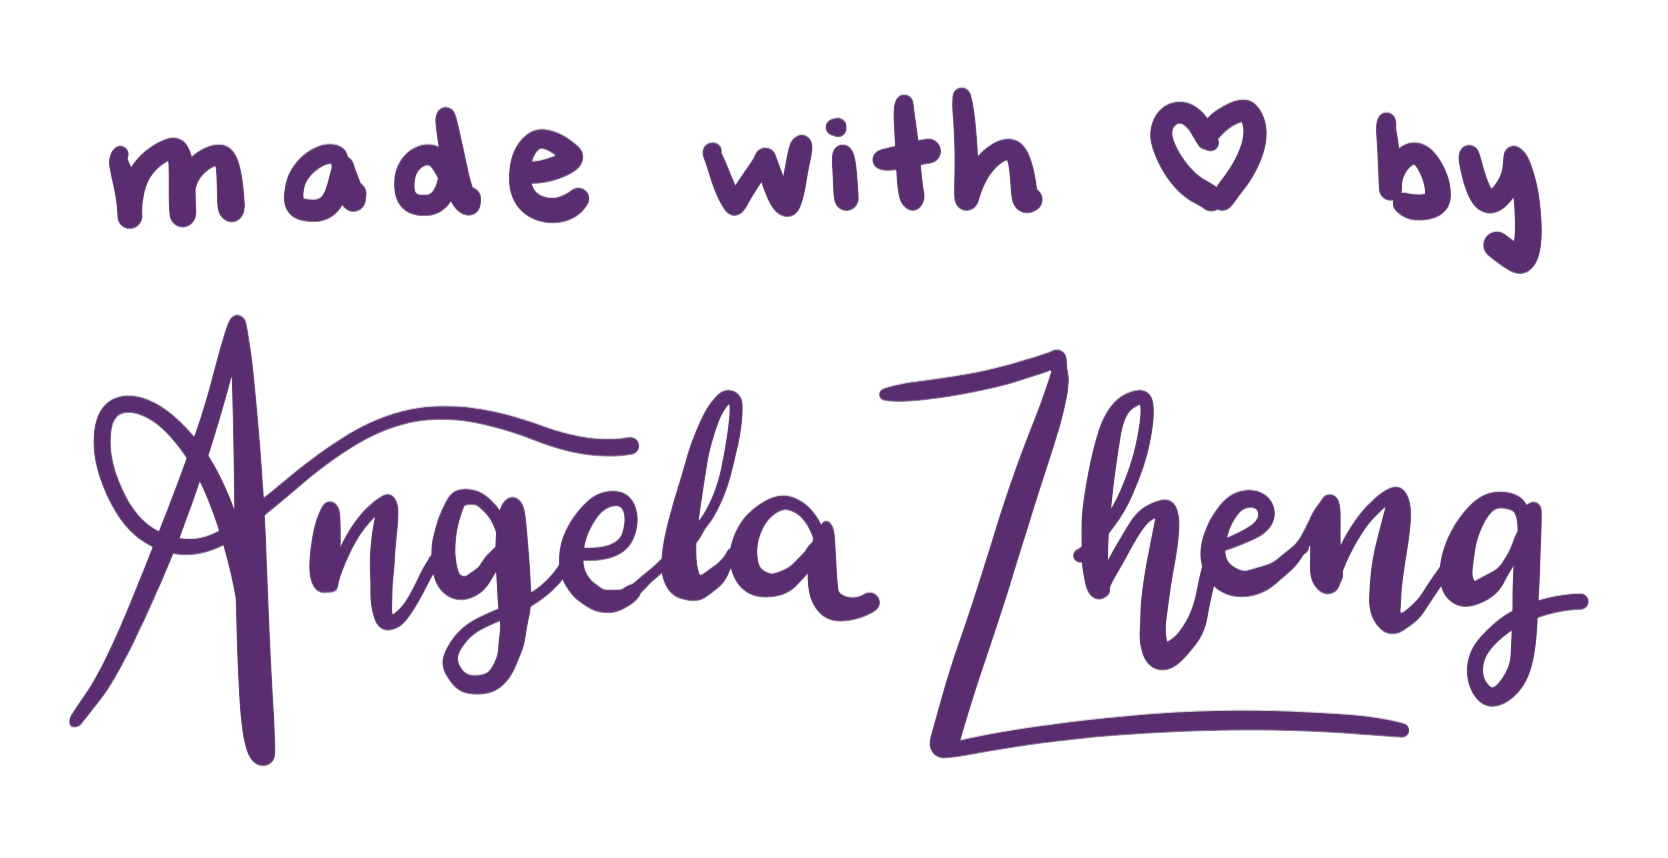 made with ♡ by
Angela Zheng